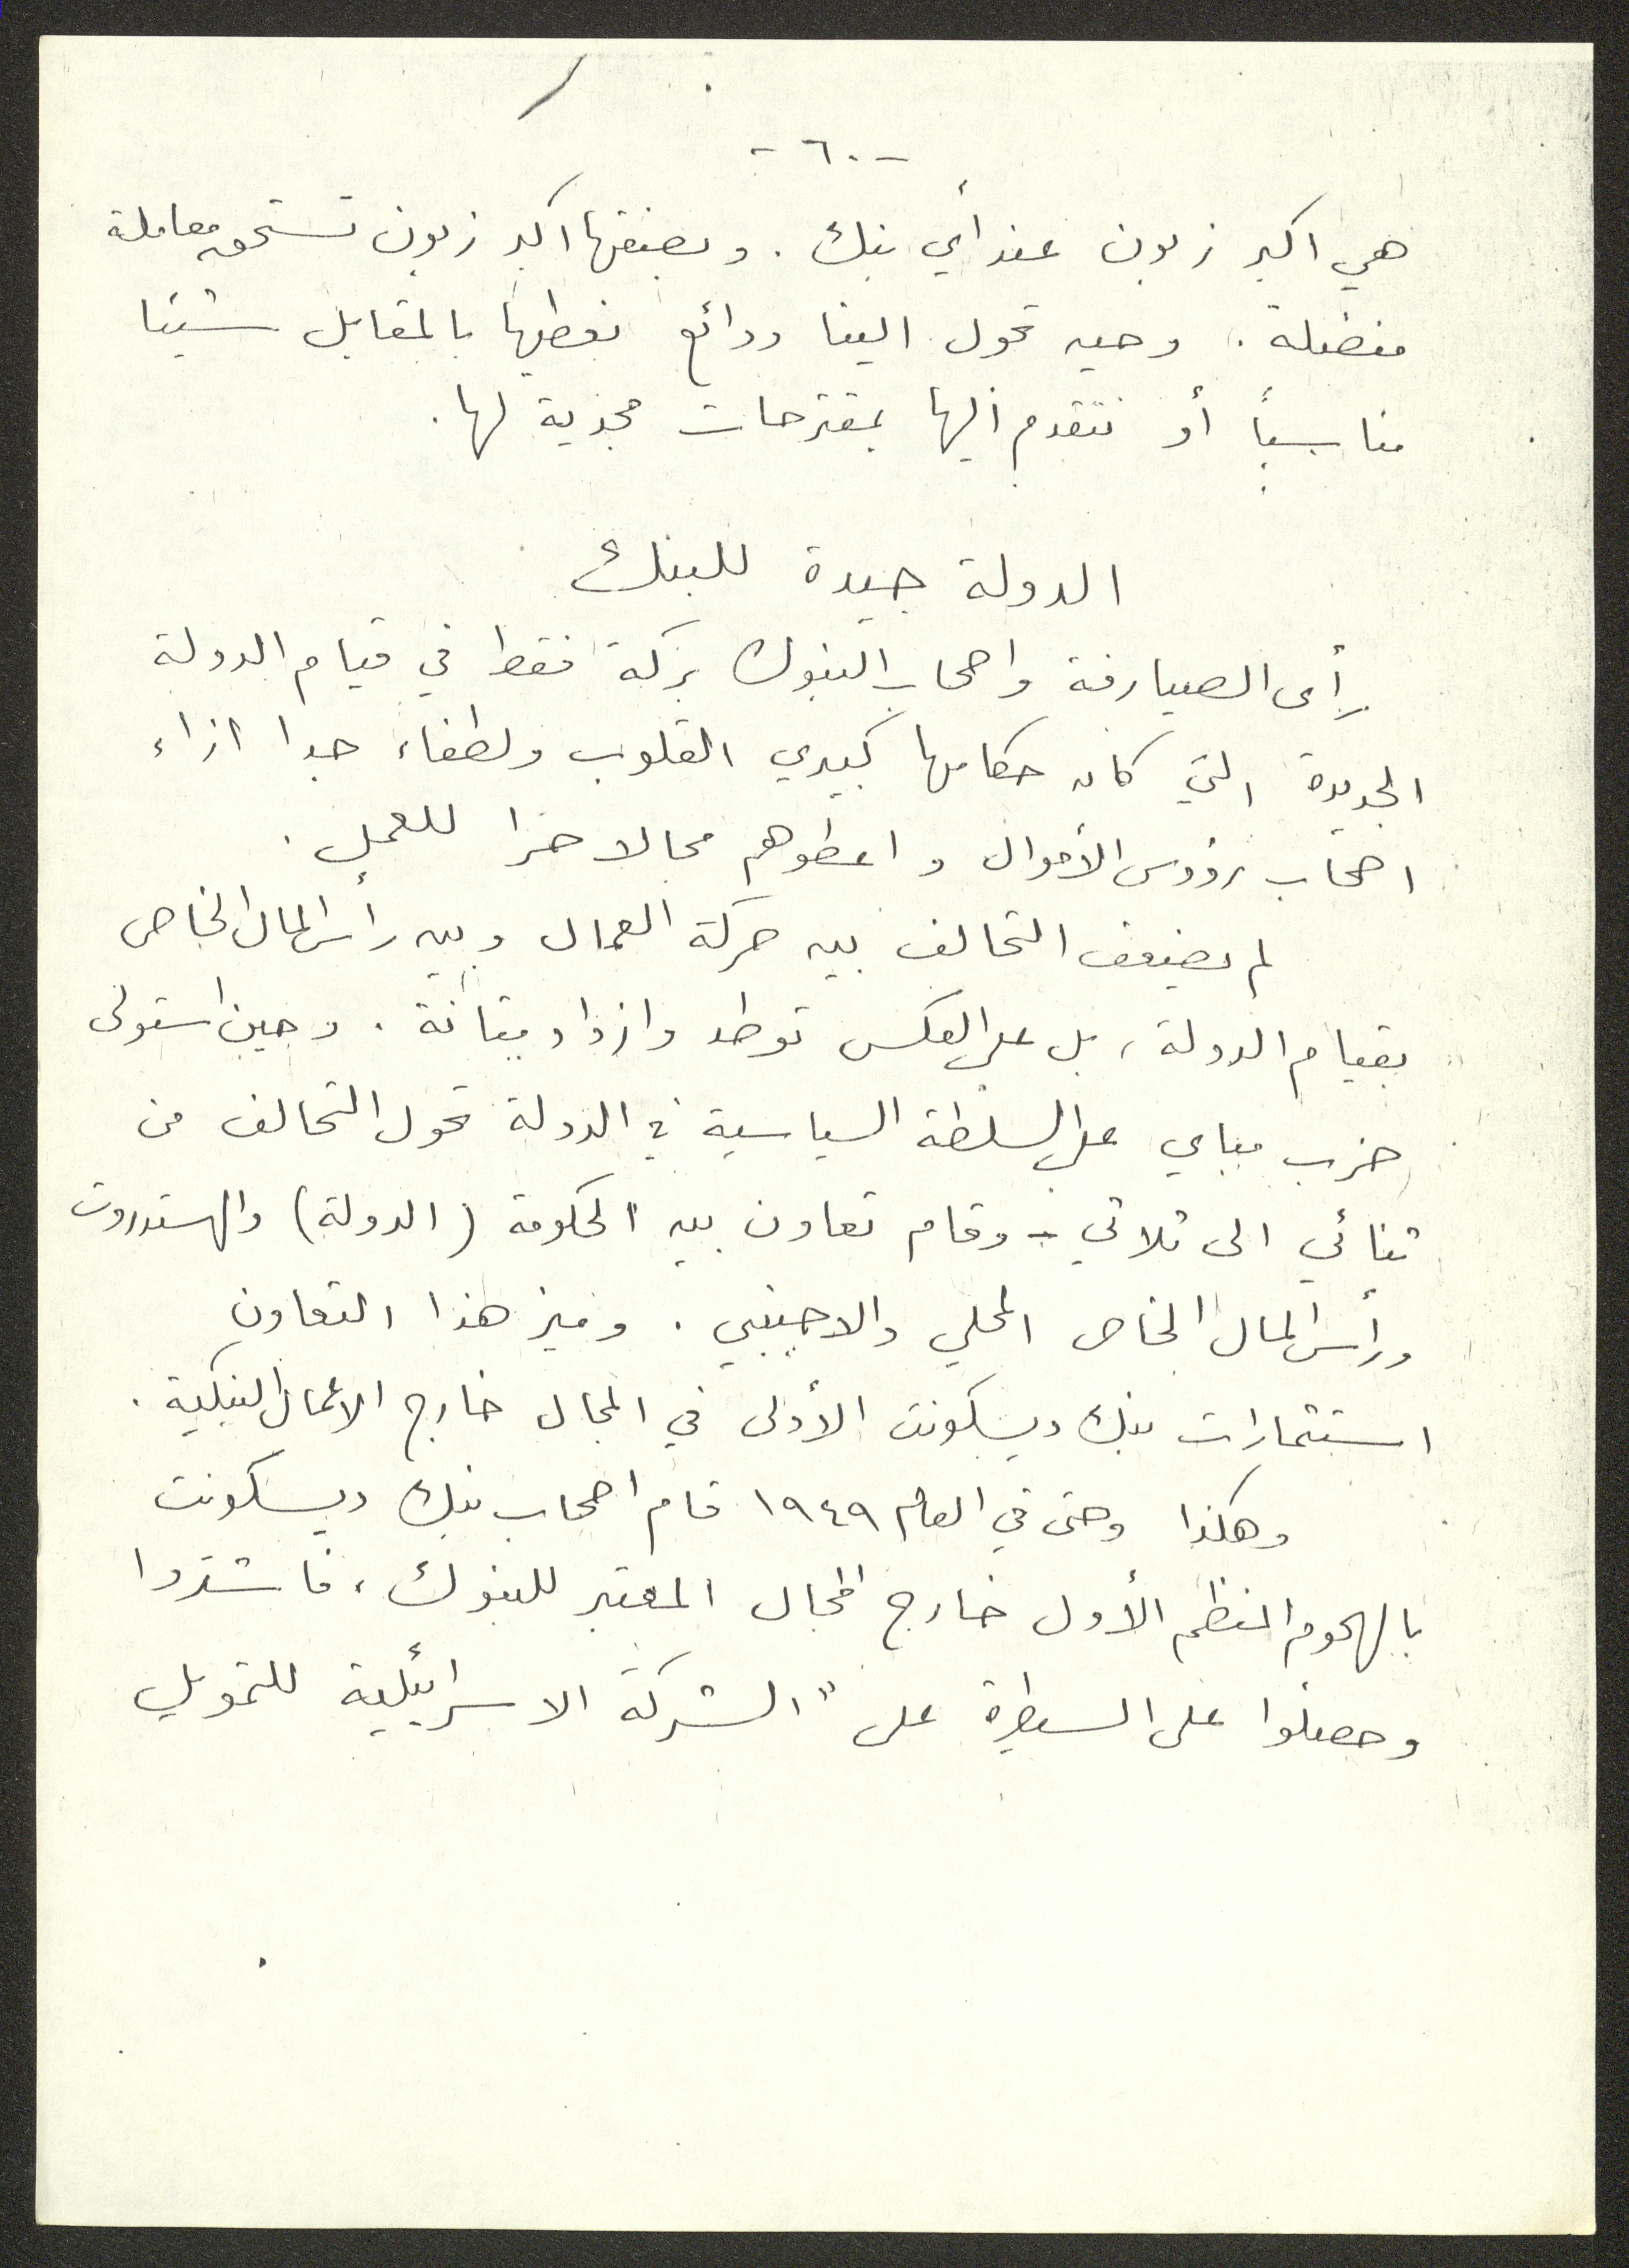 - ٦٠ -
هي اكبر زبون عند أي بنك. وبصفتها اكبر زبون تستحق معاملة
مفضلة. وحين تحول الينا ودائع نعطيها بالمقابل شيئا
مناسباً أو نتقدم اليها بمقترحات مجدية لها.
الدولة جيدة للبنك
رأى الصيارفة واصحاب البنوك بركة فقط في قيام الدولة
الجديدة التي كان حكامها كبيري القلوب ولطفاء جدا ازاء
اصحاب رؤوس الأموال واعطوهم مجالا حرا للعمل.
لم يضعف التحالف بين حركة العمال وبين رأس المال الخاص
بقيام الدولة، بل على العكس توطد وازداد متانة. وحين استولى
حزب مباي على السلطة السياسية في الدولة تحول التحالف من
ثنائي الى ثلاثي - وقام تعاون بين الحكومة (الدولة) والهستدروت
ورأس المال الخاص المحلي والاجنبي. وميز هذا التعاون
استثمارات بنك ديسكونت الأولى في المجال خارج الاعمال البنكية.
وهكذا وحتى في العام ١٩٤٩ قام اصحاب بنك ديسكونت
بالهجوم المنظم الأول خارج المجال المعتبر للبنوك، فاشتروا
وحصلوا على السيطرة على "الشركة الاسرائيلية للتمويل